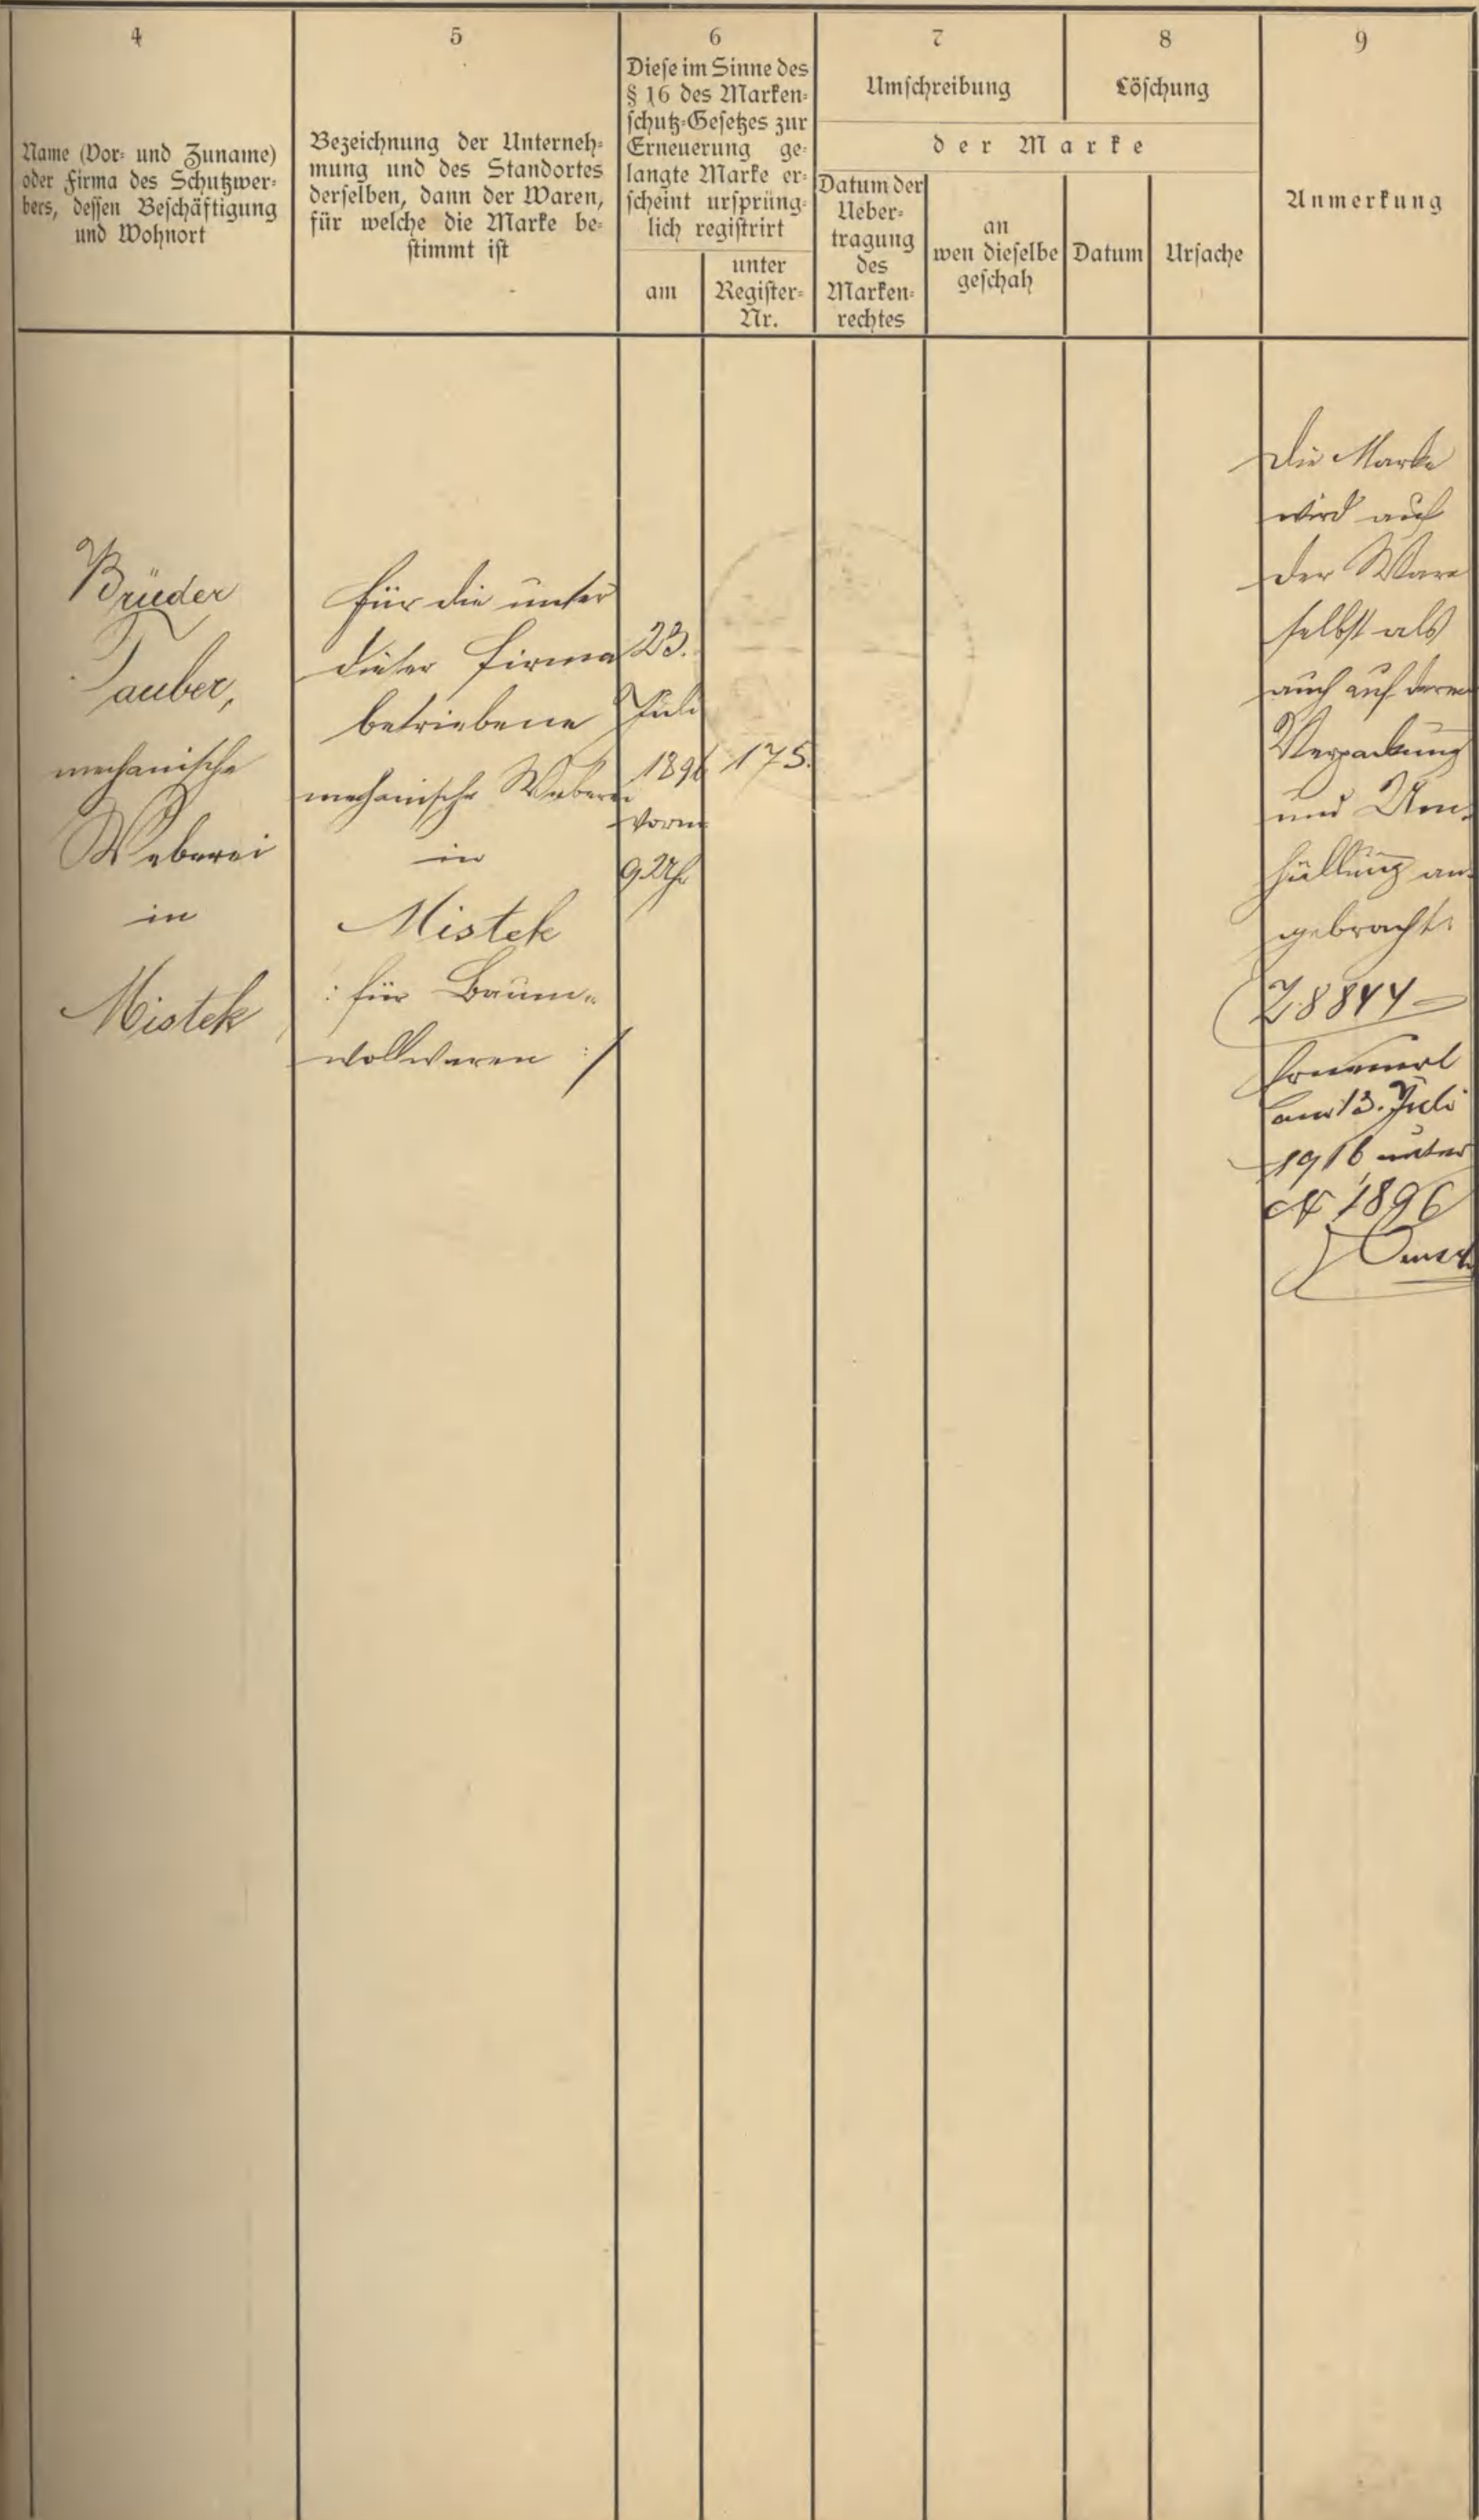 4
Name (Vor- und Zuname)
oder Firma des Schutzwer-
bers, dessen Beschäftigung
und Wohnort
5
Bezeichnung der Unterneh-
mung und des Standortes
derselben, dann der Waren,
für welche die Marke be-
stimmt ist
6
Diese im Sinne des
§ 16 des Marken-
schutz-Gesetzes zur
Erneuerung ge-
langte Marke er-
scheint ursprüng-
lich registrirt
am
unter
Register-
Nr.
7
Umschreibung
8
Löschung
der Marke
Datum der
Ueber-
tragung
des
Marken-
rechtes
an
wen dieselbe
geschah
Datum
Ursache
9
Anmerkung
Brüder
Tauber,
mechanische
Weberei
in
Mistek
für die unter
dieser Firma
betriebene
mechanische Weberei
in
Mistek
: für Baum-
wollwaren :/
23.
Juli
1896
Vorm
9 Uhr
175.
Die Marke
wird auf
der Ware
selbst als
auch auf deren
Verpackung
und Um-
hüllung an-
gebracht.
Z. 8844
Erneuert
am 13. Juli
1916 unter
N 1896